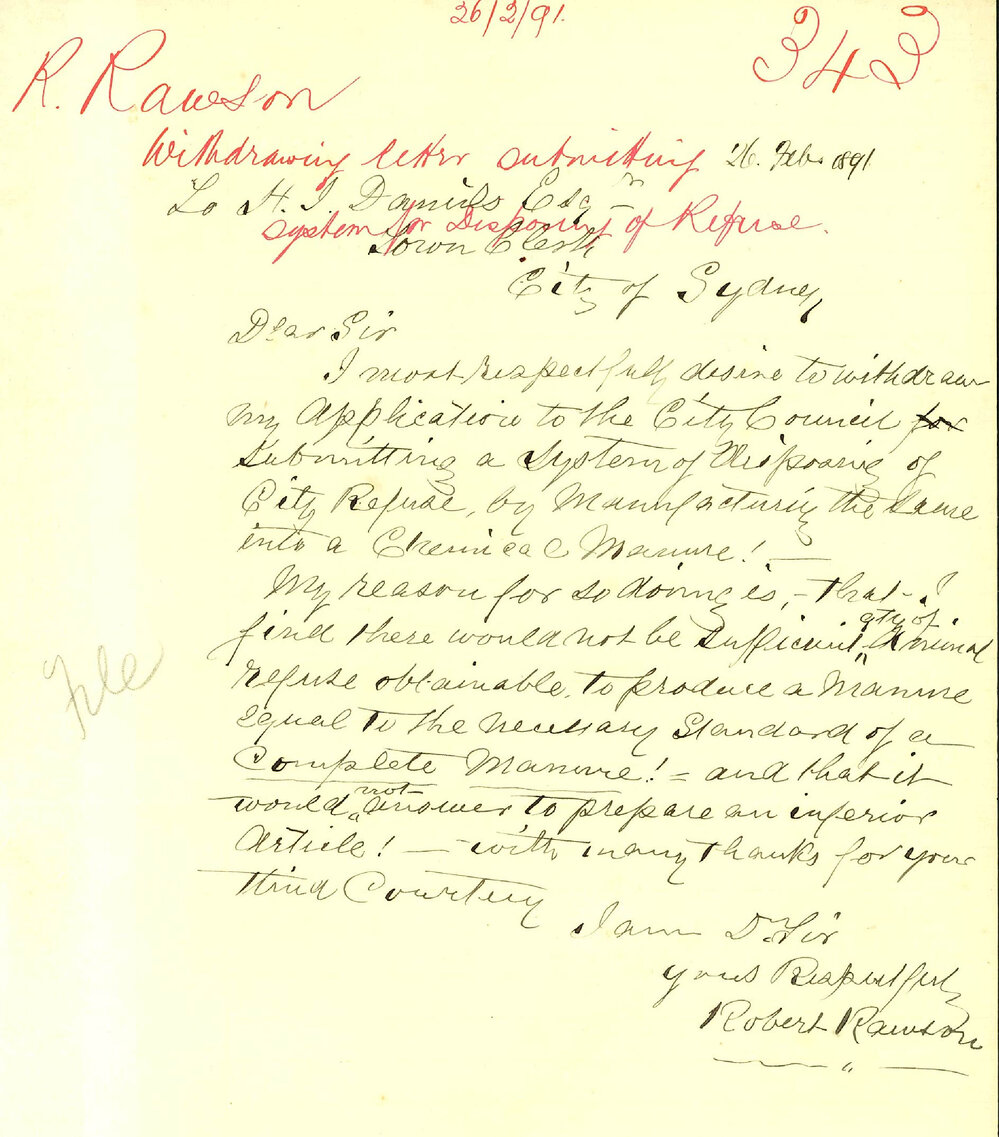 26/2/91.
343
R. Rawson
Withdrawing letter submitting
system for Disposing of Refuse.
26. Feb. 1891
To H. J. Daniels Esqr
Town Clerk
City of Sydney,
Dear Sir
I most respectfully desire to withdraw
my Application to the City Council for
Submitting a System of Disposing of
City Refuse, by Manufacturing the Same
into a Chemical Manure! —
My reason for so doing is, - that - I
find there would not be Sufficient qty of Animal
refuse obtainable, to produce a Manure
equal to the necessary Standard of a
Complete Manure! - and that it
would not answer to prepare an inferior
Article! — with many thanks for your
Kind Courtesy
I am Dr. Sir
yours Respectfully
Robert Rawson
File